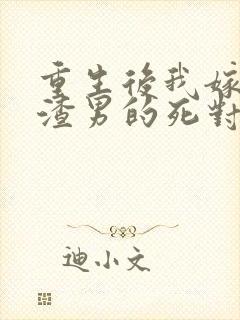 重生後我嫁
渣男的死對
迪小文